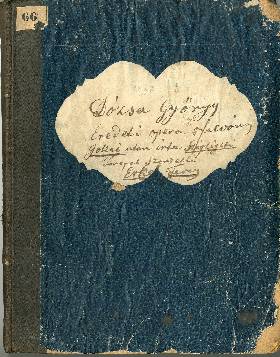 66
Dózsa György
Eredeti opera 5 felvonás
Jókai után irta Szigligeti
zenéjét szerzette
Erkel Ferencz